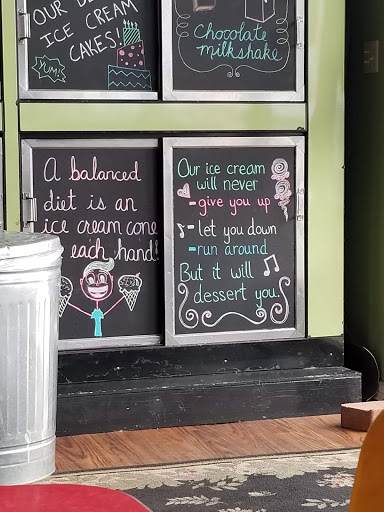 OUR
ICE CREAM
CAKES!
YUM!
Chocolate
milkshake
A balanced
diet is an
ice cream cone
each hand!
Our ice cream
will never
- give you up
- let you down
- run around
But it will
dessert you.